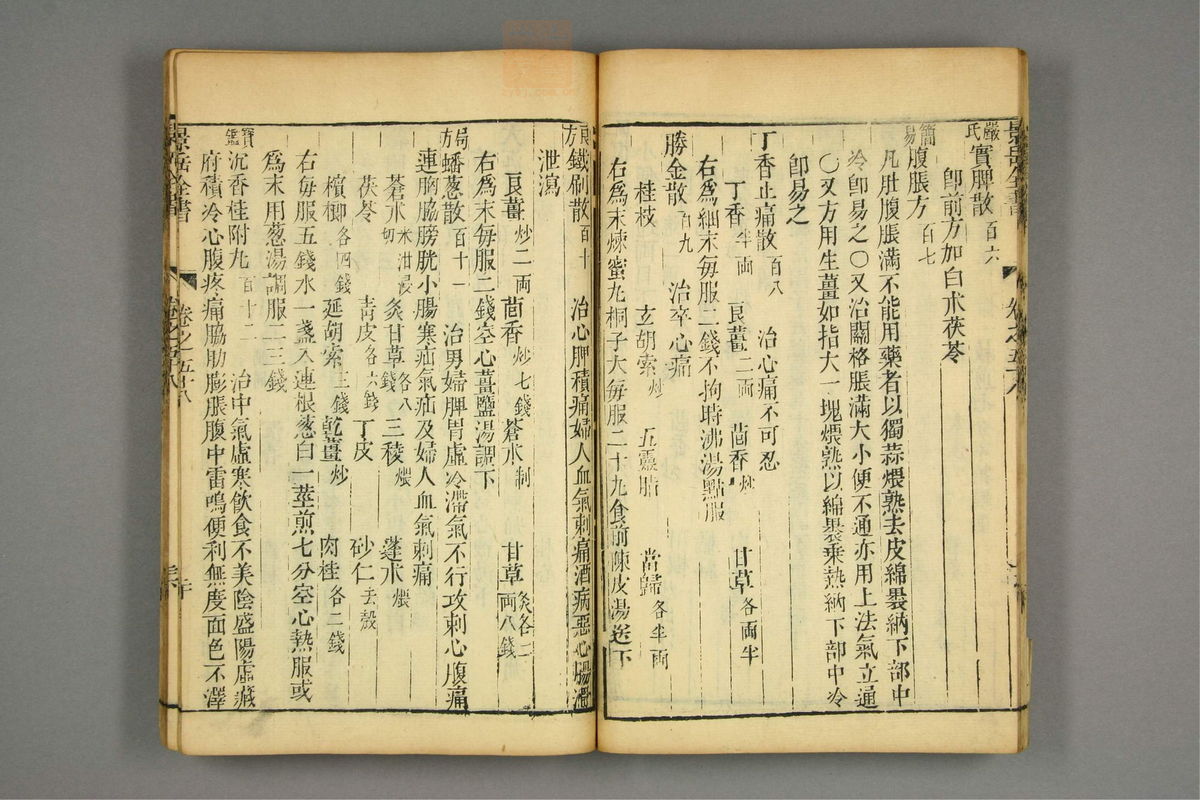 景岳全書
嚴氏實脾散百六
卽前方加白朮茯苓
簡易腹脹方百七
凡肚腹脹滿不能用藥者以獨蒜煨熟去皮綿裹納下部中
冷卽易之〇又治關格脹滿大小便不通亦用上法氣立通
〇又方用生薑如指大一塊煨熟以綿裹乘熱納下部中冷
卽易之
丁香止痛散百八 治心痛不可忍
丁香半兩 良薑二兩 茴香炒 甘草各兩半
右爲細末每服二錢不拘時沸湯點服
勝金散百九 治卒心痛
桂枝 玄胡索炒 五靈脂 當歸各半兩
右爲末煉蜜丸桐子大每服二十丸食前陳皮湯送下
良方鐵刷散百十 治心脾積痛婦人血氣刺痛酒病惡心腸滑
泄瀉
良薑炒二兩 茴香炒七錢 蒼朮制 甘草炙各二兩八錢
右爲末每服二錢空心薑鹽湯調下
局方蟠葱散百十一 治男婦脾胃虛冷滯氣不行攻刺心腹痛
連胸脇膀胱小腸寒疝氣疝及婦人血氣刺痛
蒼朮米泔浸切 炙甘草各八錢 三稜煨 蓬朮煨
茯苓 靑皮各六錢 丁皮 砂仁去殼
檳榔各四錢 延胡索三錢 乾薑炒 肉桂各二錢
右每服五錢水一盞入連根葱白一莖煎七分空心熱服或
爲末用葱湯調服二三錢
寶鑑沉香桂附丸百十二 治中氣虛寒飮食不美陰盛陽虛藏
府積冷心腹疼痛脇肋膨脹腹中雷鳴便利無度面色不澤
景岳全書 卷之五十八